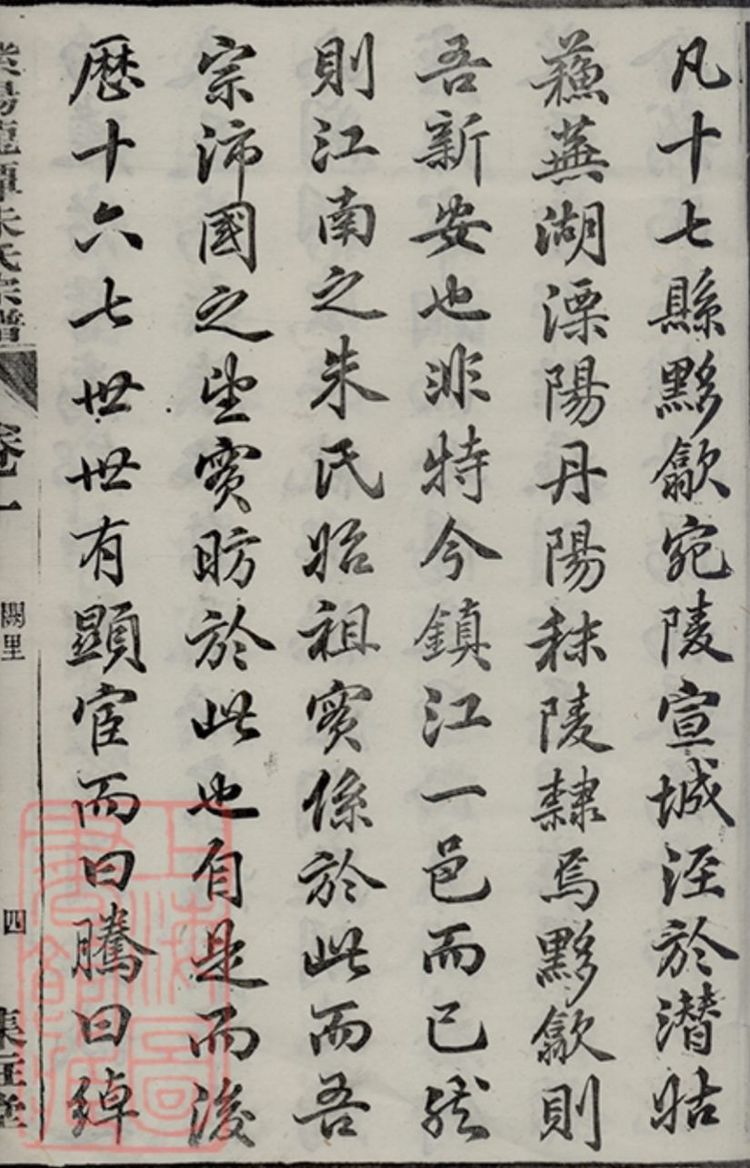 凡十七縣黟歙宛陵宣城涇於潛姑
蘓蕪湖溧陽丹陽秣陵隸焉黟歙則
吾新安也非特今鎮江一邑而已然
則江南之朱氏始祖實係於此而吾
宗沛國之望實昉於此也自是而後
歷十六七世世有顯宦而曰騰曰綽
紫陽龍潭朱氏宗譜
卷一
闕里
四
集在堂
上海圖書館藏